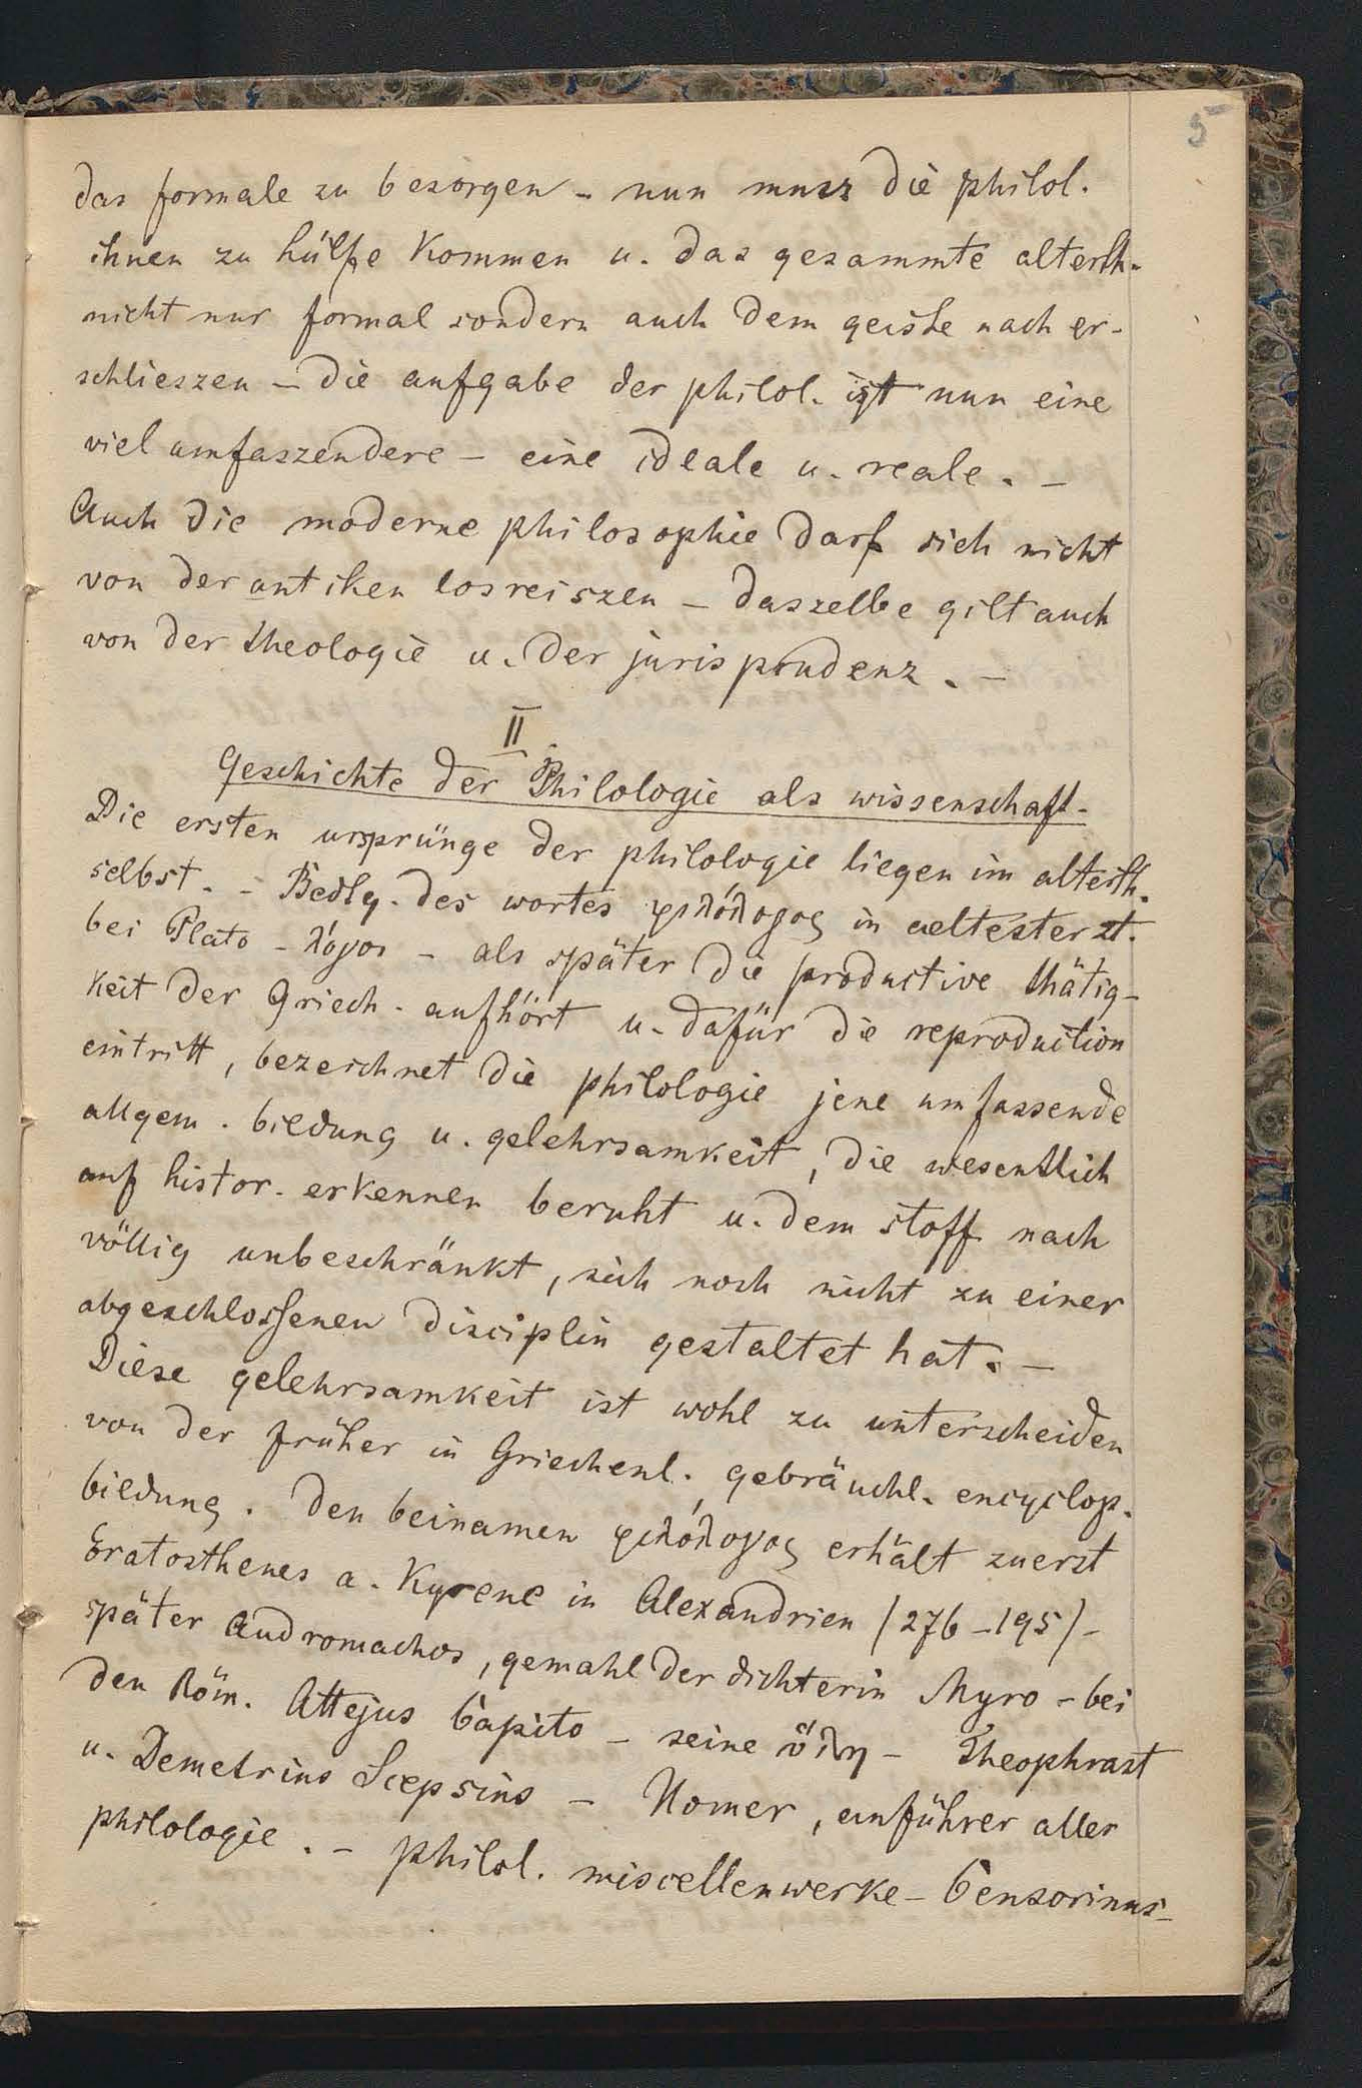 5
das formale zu besorgen – nun musz die philol.
ihnen zu hülfe kommen u. das gesammte alterth.
nicht nur formal sondern auch dem geiste nach er-
schlieszen – die aufgabe der philol. ist nun eine
viel umfaszendere – eine ideale u. reale. –
Auch die moderne philosophie darf sich nicht
von der antiken losreiszen – daszelbe gilt auch
von der theologie u. der jurisprudenz. –
II
Geschichte der Philologie als wissenschaft.
Die ersten ursprünge der philologie liegen im alterth.
selbst. – Bedtg. des wortes φιλόλογος in aeltester zt.
bei Plato – λόγος – als später die productive thätig-
keit der Griech. aufhört u. dafür die reproduction
eintritt, bezeichnet die philologie jene umfassende
allgem. bildung u. gelehrsamkeit, die wesentlich
auf histor. erkennen beruht u. dem stoff nach
völlig unbeschränkt, sich noch nicht zu einer
abgeschlossenen disciplin gestaltet hat. –
Diese gelehrsamkeit ist wohl zu unterscheiden
von der früher in Griechenl. gebräuchl. encyclop.
bildung. Den beinamen φιλόλογος erhält zuerst
Eratosthenes a. Kyrene in Alexandrien (276–195) –
später Andromachos, gemahl der dichterin Myro – bei
den Röm. Attejus Capito – seine ὕλη – Theophrast
u. Demetrius Scepsius – Homer, anführer aller
philologie. – philol. miscellenwerke – Censorinus –